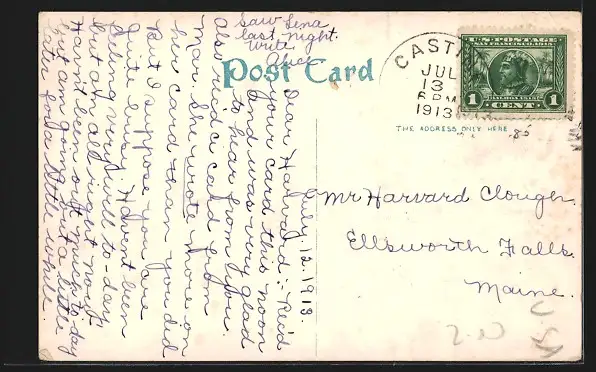 Saw Lena
last night.
Write
Alice
Post Card
July 12. 1913.
Dear Harvard:- Rec'd
your card this noon
and was very glad
to hear from you.
Also rec'd a card from
Mar. She wrote more on
her card than you did
But I suppose you are
quite busy. Haven't been
feeling very well to-day
but am all right now,
Haven't been out much to-day
but am going out a little
late for a little while.
CAST
JUL
13
6 PM
1913
U.S. POSTAGE
SAN FRANCISCO, 1915
1 CENT 1
THE ADDRESS ONLY HERE
Mr Harvard Clough.
Ellsworth Falls.
Maine.